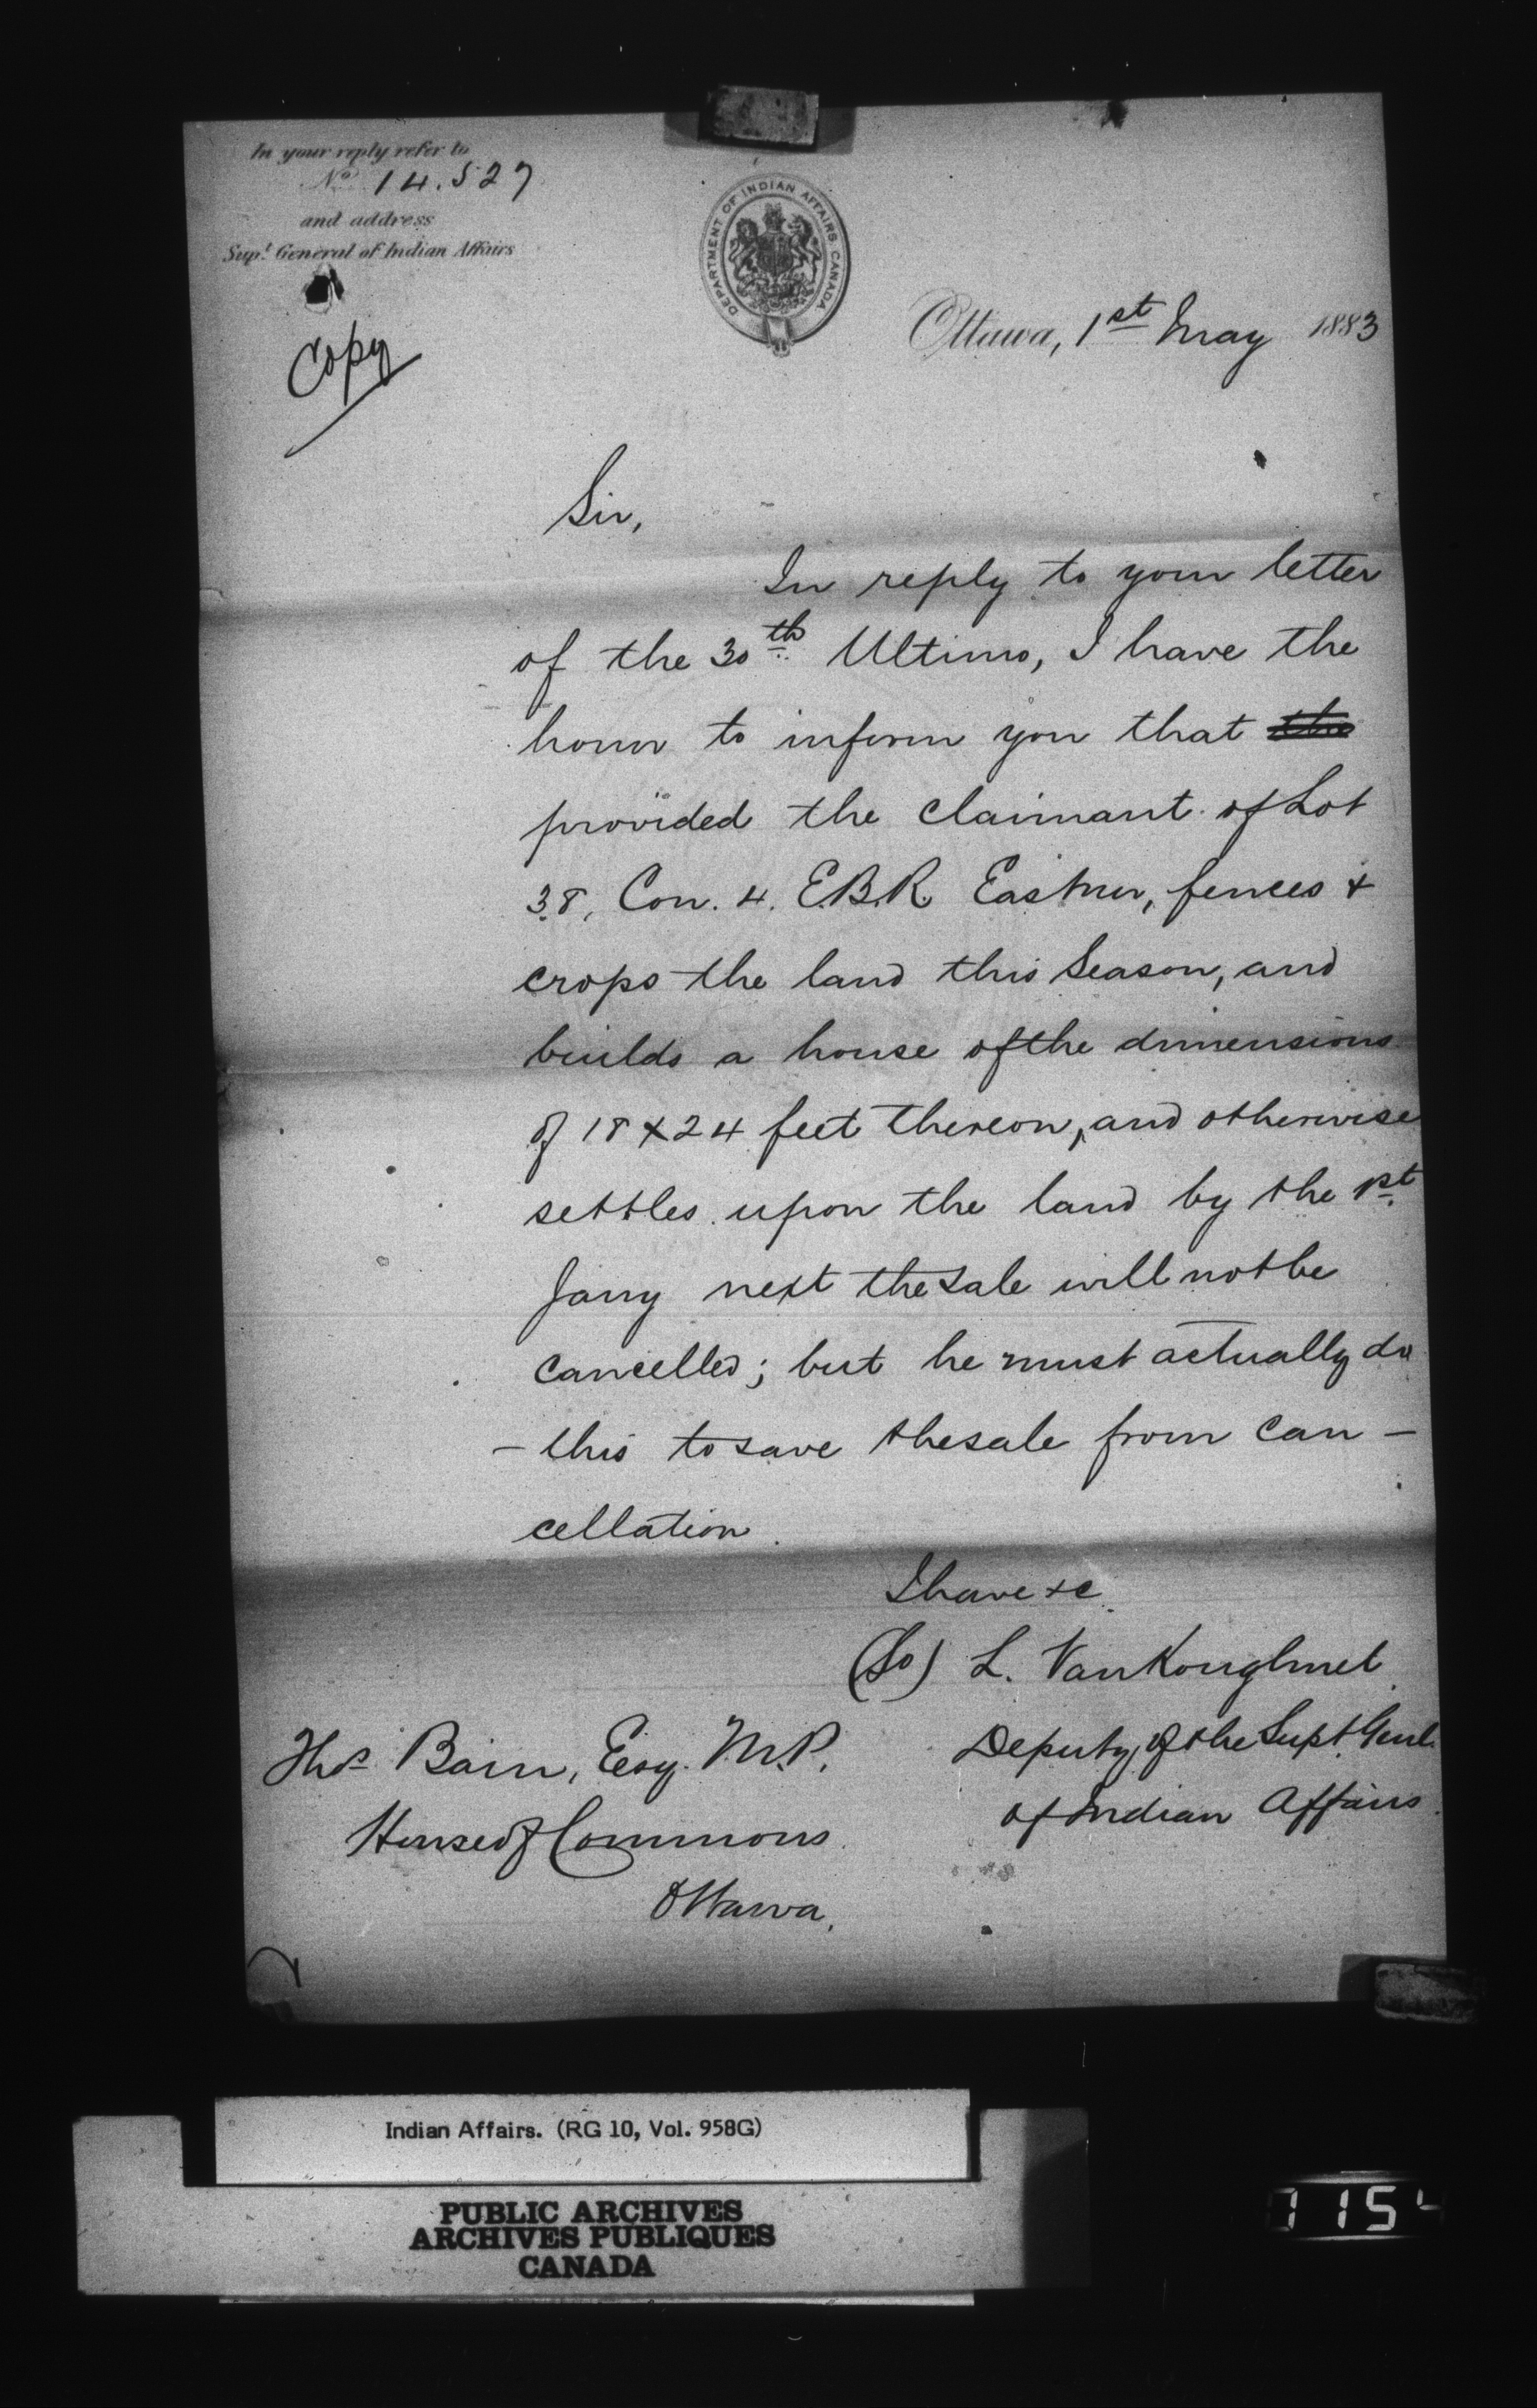 In your reply refer to
No 14.527
and address
Supt General of Indian Affairs
Copy
DEPARTMENT OF INDIAN AFFAIRS CANADA
Ottawa, 1st May 1883
Sir,
In reply to your letter
of the 30th Ultimo, I have the
honor to inform you that the
provided the claimant of Lot
38, Con. 4. E.B.R. Eastnor, fences &
crops the land this Season, and
builds a house of the dimensions
of 18 x 24 feet thereon, and otherwise
settles upon the land by the 1st
Jany next the sale will not be
cancelled; but he must actually do
this to save the sale from can-
cellation.
I have &c.
(Sd) L. VanKoughnet
Deputy of the Supt Genl.
of Indian Affairs.
Thos Bain, Esq. M.P.
House of Commons
Ottawa.
Indian Affairs. (RG 10, Vol. 958G)
PUBLIC ARCHIVES
ARCHIVES PUBLIQUES
CANADA